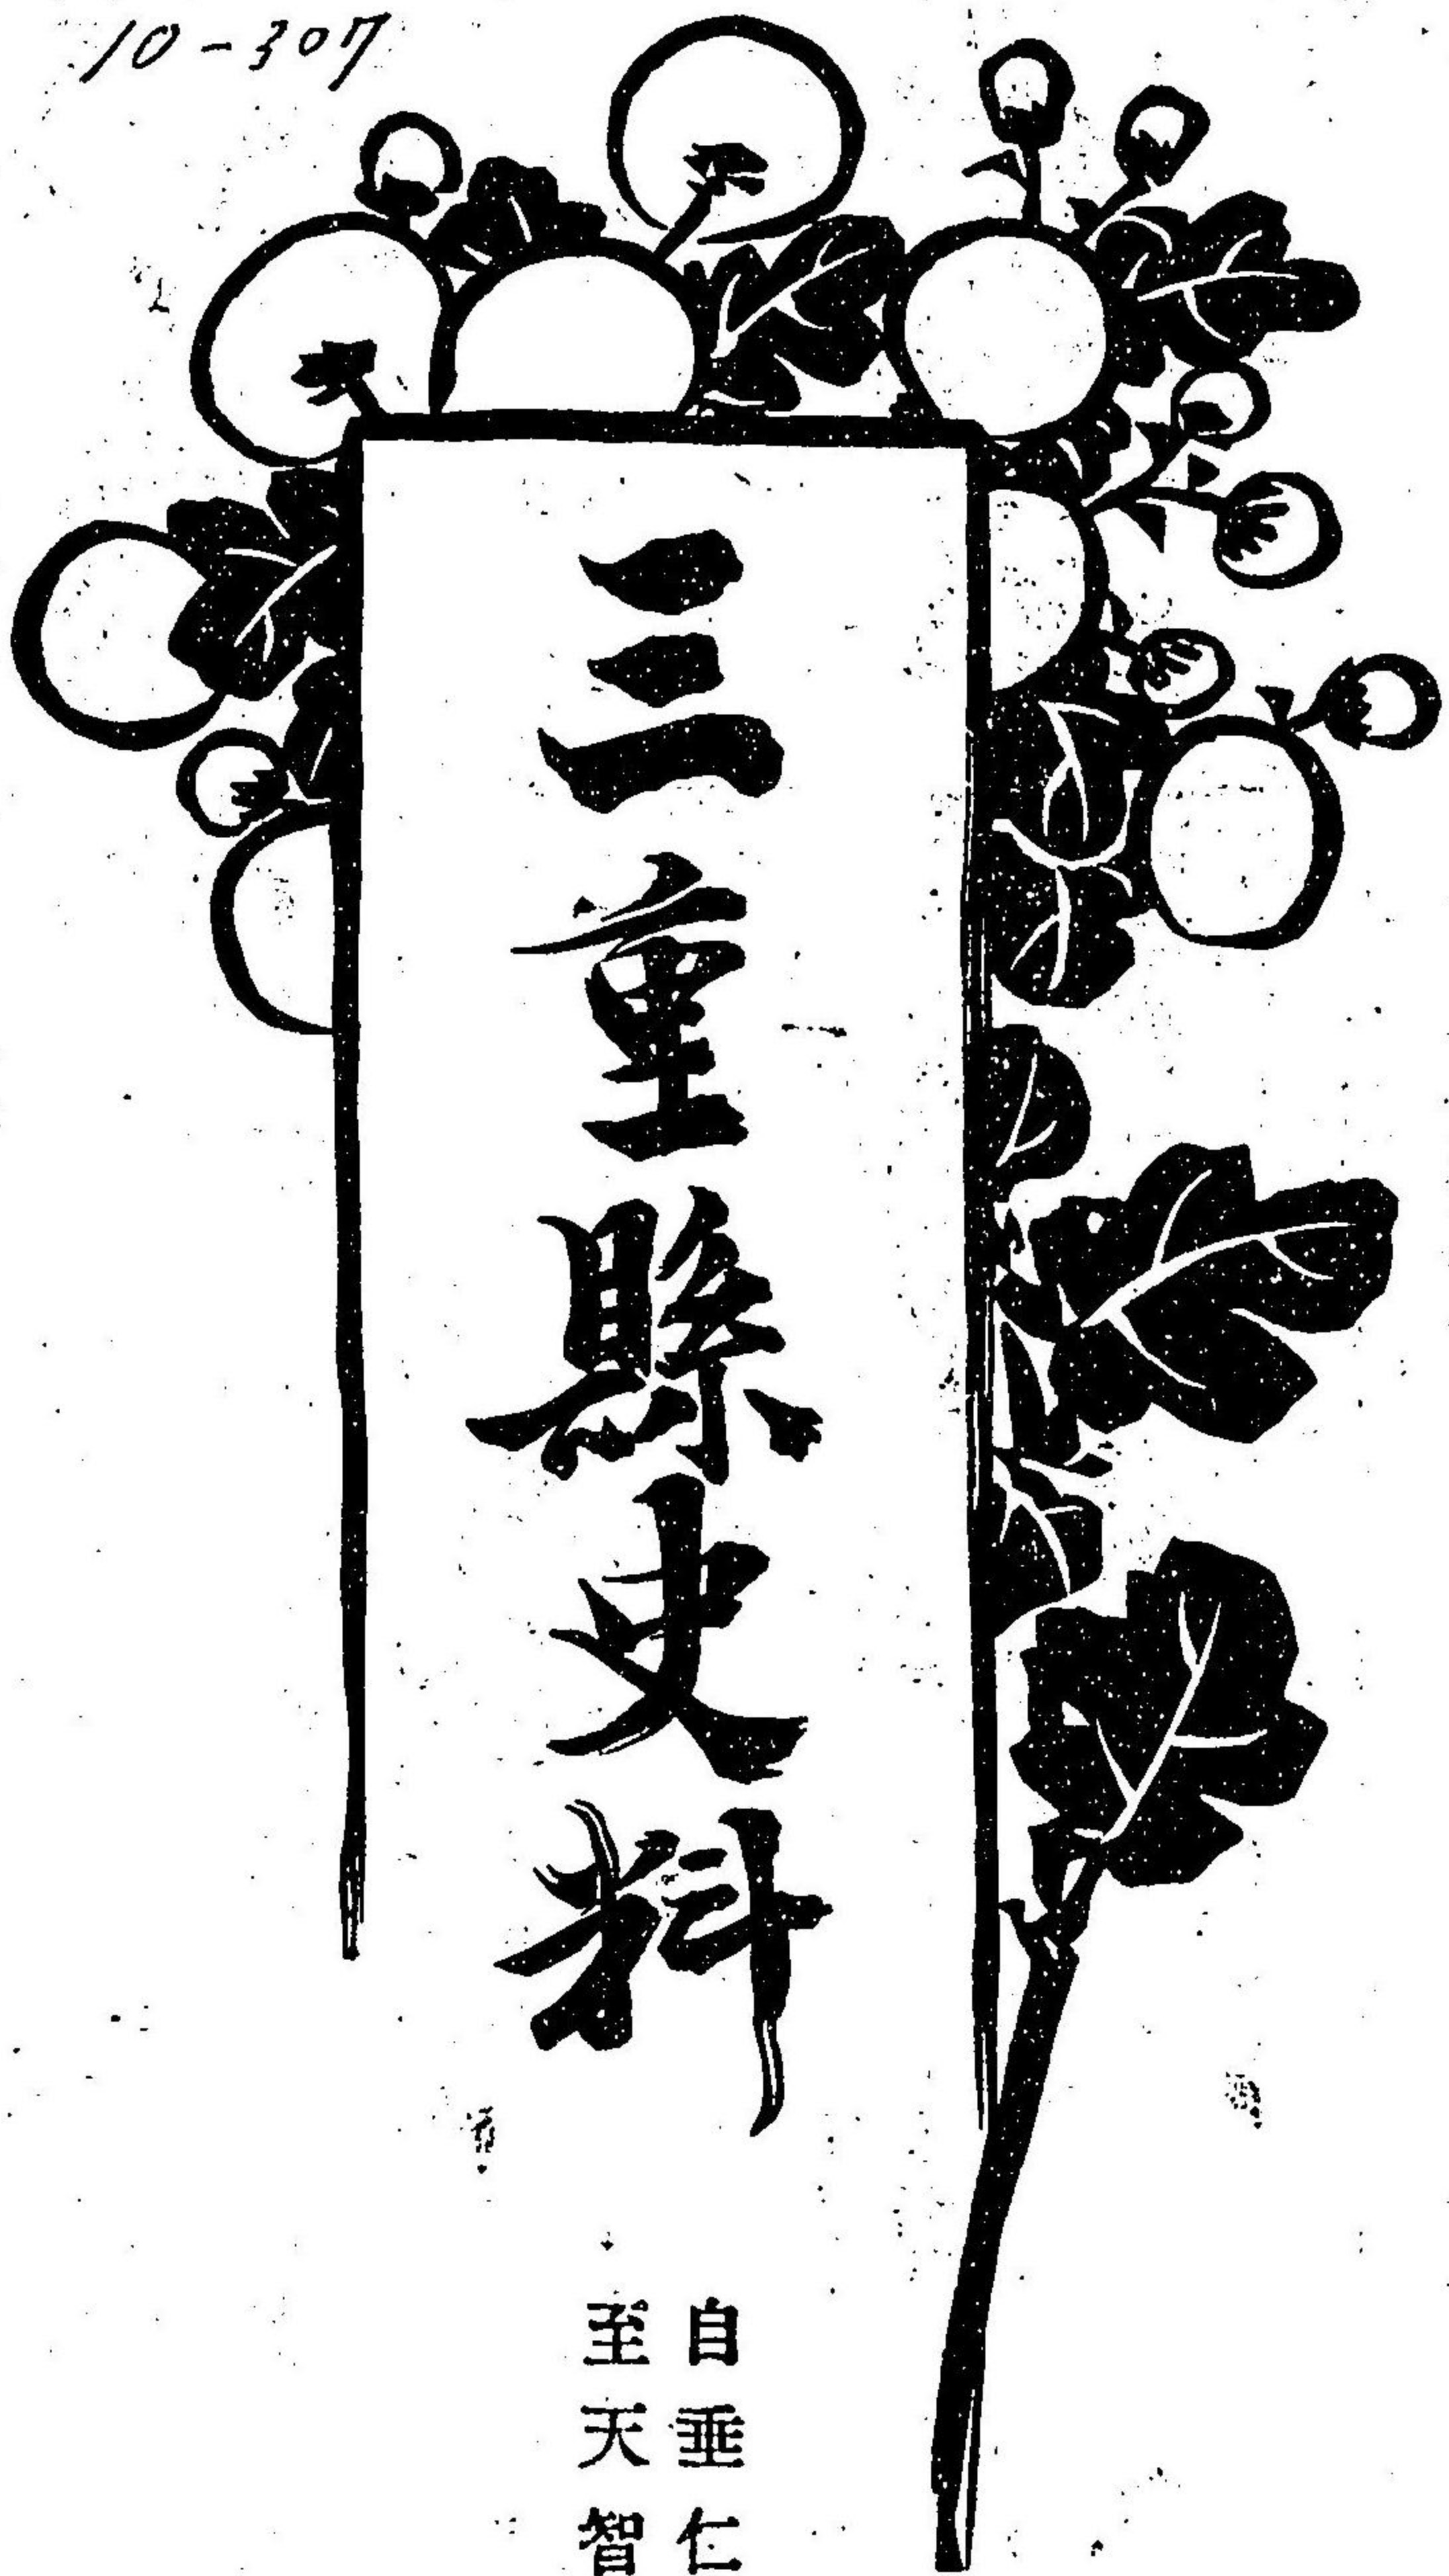 10-307
三重縣史料
自垂仁
至天智